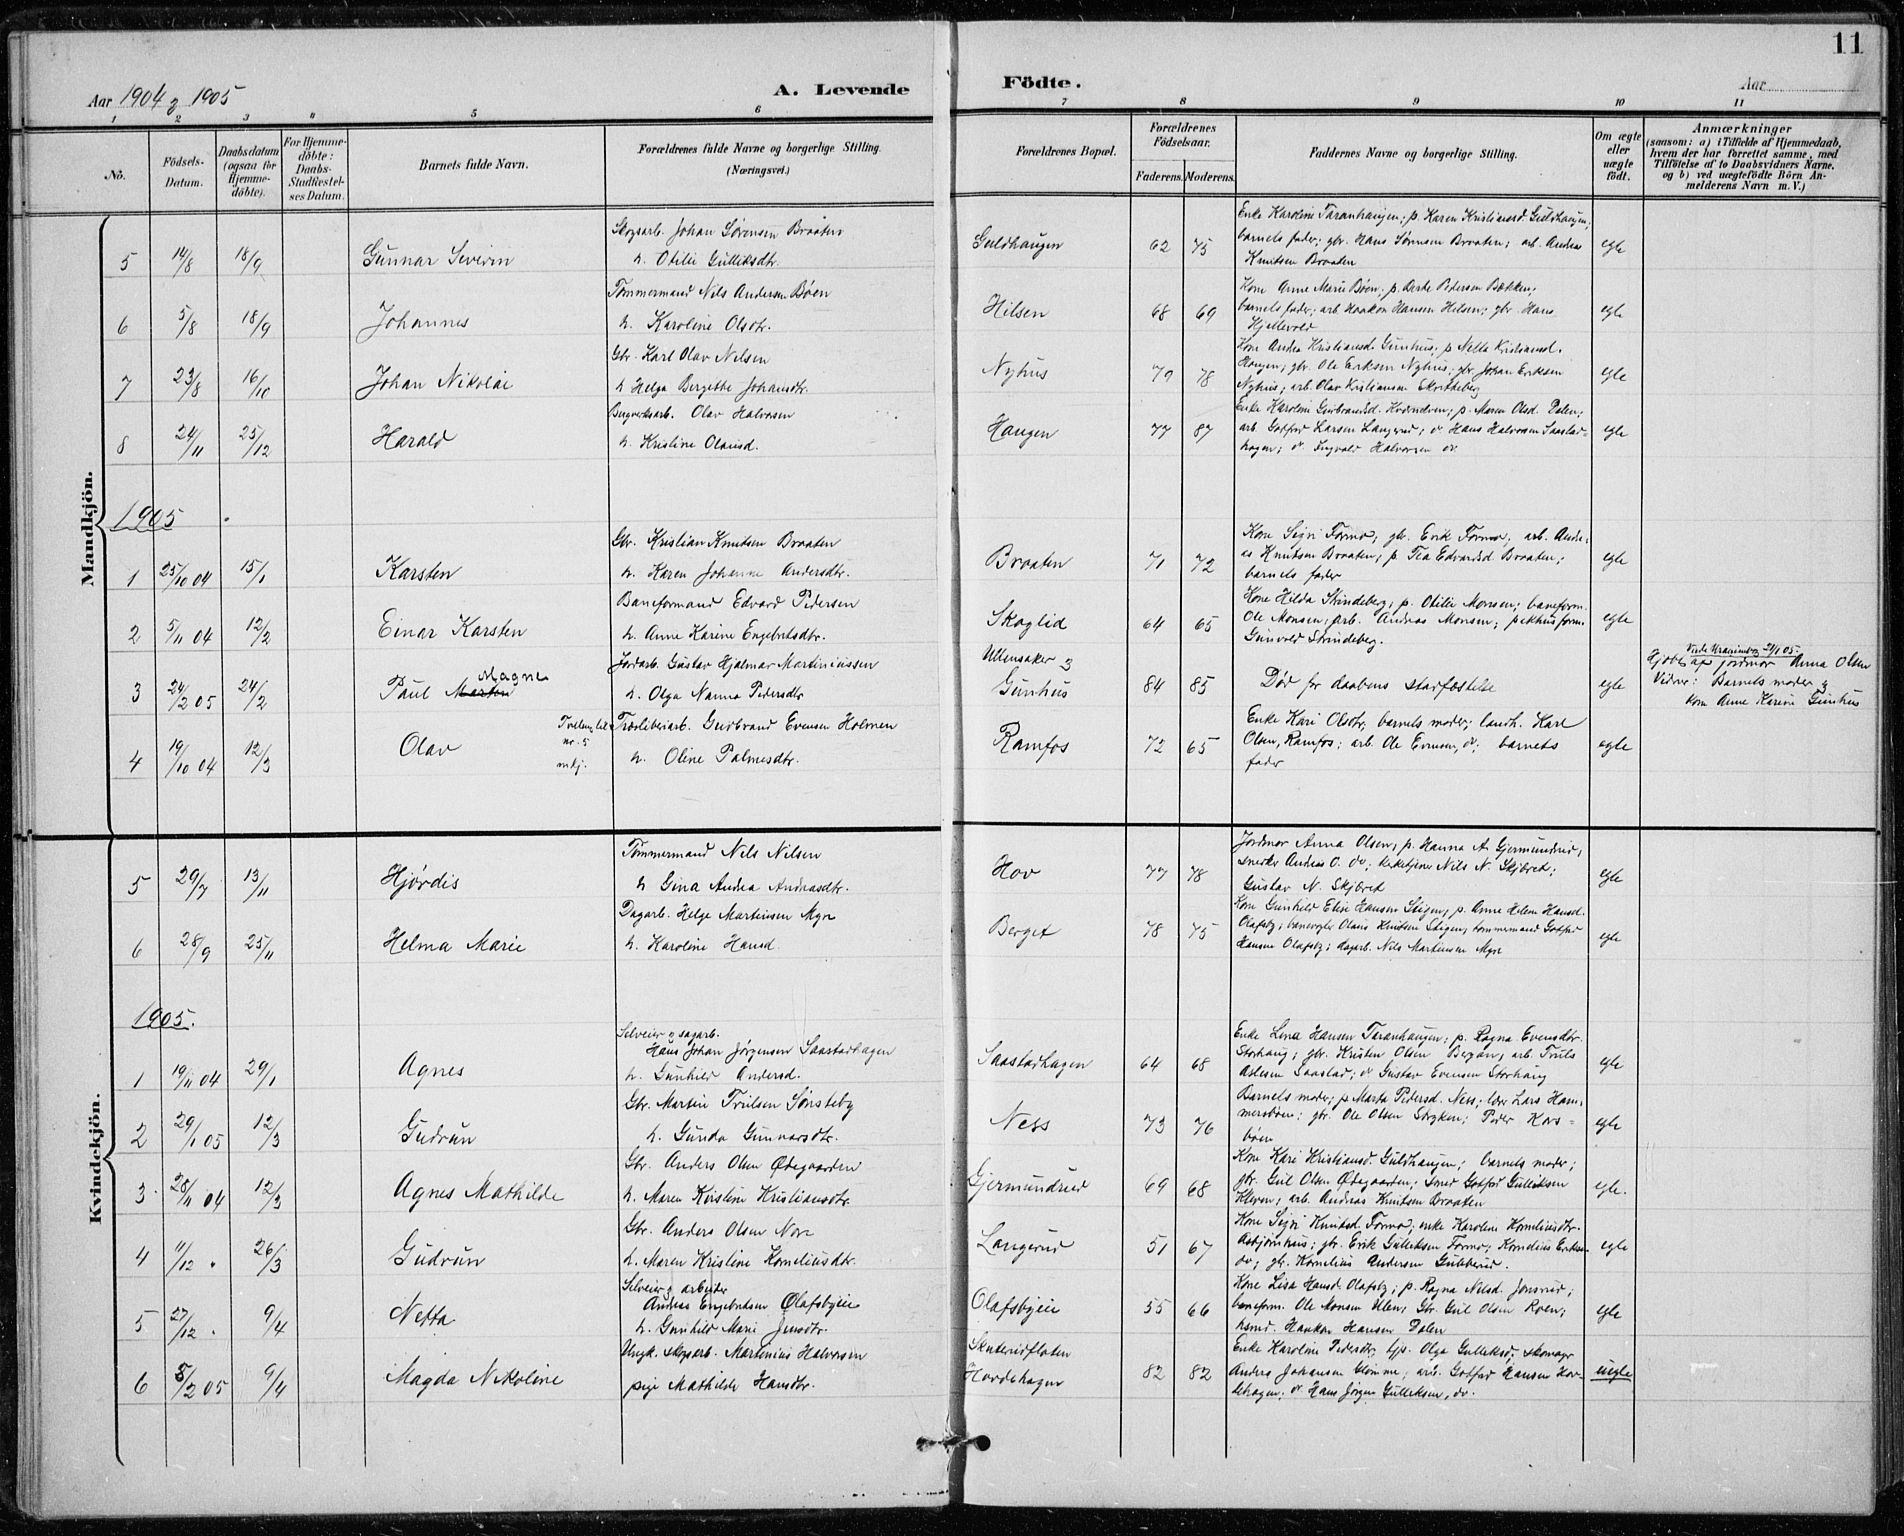 11
Aar 1904 & 1905
A. Levende Födte.
Aar
1 2 3 4 5 6 7 8 9 10 11
No.
Födsels-Datum.
Daabsdatum (ogsaa for Hjemmedöbte).
For Hjemmedöbte: Daabs-Stadfæstelses Datum.
Barnets fulde Navn.
Forældrenes fulde Navne og borgerlige Stilling. (Næringsvei.)
Forældrenes Bopæl.
Forældrenes Födselsaar.
Faderens. Moderens.
Faddernes Navne og borgerlige Stilling.
Om ægte eller uægte födt.
Anmærkninger
(saasom: a) i Tilfælde af Hjemmedaab, hvem der har forrettet samme, med Tilföielse af to Daabsvidners Navne. og b) ved uægtefödte Börn Anmelderens Navn m. V.)
Mandkjön.
Enke Karoline Taranhaugen; p. Karen Kristiansd Guldhaugen;
Skogsarb. Johan Sørensen Braaten
5 14/8 18/9 Gunnar Severin
h. Otilie Gulliksdtr.
Guldhaugen 62 75
barnets fader; gbr. Hans Sørensen Braaten; arb. Andreas
Knutsen Braaten
egte
Tømmermand Nils Andersen Bøen
6 5/8 18/9 Johannes
h. Karoline Olsdtr.
Hilsen 68 69
Kone Anne Marie Bøen; p. Berte Pedersen Bækken;
barnets fader; arb. Haakon Hansen Hilsen; gbr. Hans
Hjellevold
egte
Gbr. Karl Olav Nilsen
7 23/8 16/10 Johan Nikolai
h. Helga Bergitte Johansdtr.
Nyhus 70 78
Kone Andrea Kristiansd. Gunhus; p. Netta Kristiansd.
Haugen; gbr. Ole Eriksen Nyhus; gbr. Johan Eriksen
Nyhus; arb. Olav Kristiansen
egte
Bergverksarb. Olav Halvorsen
8 24/11 25/12 Harald
h. Kristine Olausd.
Haugen 77 87
Enke Karoline Gudbrandsd. ; p. Maren Olsd. Dalen;
arb. Gotfred Larsen Langerud; d. Hans Halvorsen Saastad-
hagen; d. Ingvald Halvorsen do
egte
1905
Gbr. Kristian Knutsen Braaten
1 25/10 04 15/1 Karsten
h. Karen Johanne Andersdtr.
Braaten 71 72
Kone Sigri Formo; gbr. Erik Formo, arb. Andre-
as Knutsen Braaten; p. Tea Edvardsd Braaten;
barnets fader
egte
Baneformand Edvard Pedersen
2 5/11 04 12/2 Einar Karsten
h. Anne Karine Engebretsdtr.
Skoglid 64 65
Kone Hilda Strindeberg; p. Otilie Monsen; baneform.
Ole Monsen; arb. Andreas Monsen; pakhusform.
Gunvald Strindeberg.
egte
Jordarb. Gustav Hjalmar Martiniussen
3 24/2 05 24/2 Paul Martin Magne
h. Olga Nanna Pedersdtr
Ullensaker &
Gunhus 84 85
Død før daabens stadfæstelse
egte
Hjdbt af jordmor Anna Olsen
Vidner: Barnets moder &
kone Anne Karine Gunhus
Træsliberiarb. Gudbrand Evensen Holmen
4 19/10 04 12/3 Olav
Tvilling til nr. 5 mkj.
h. Oline Palmesdtr.
Ramfos 72 65
Enke Kari Olsdtr; barnets moder; landh. Karl
Olsen, Ramfos; arb. Ole Evensen, do; barnets
fader
egte
Kvindekjön.
Tømmermand Nils Nilsen
5 29/7 13/11 Hjørdis
h Gina Andrea Andreasdtr.
Hov 77 78
Jordmor Anna Olsen, p. Hanna A. Gjermundrud;
snedker Andreas O. do; kirketjener Nils N. Skjbret;
Gustav N. Skjbret
egte
Dagarb. Helge Martinsen Myr
6 28/9 25/11 Helma Marie
h. Karoline Hansd.
Berget 78 75
Kone Gunhild Elise Hansen Stigen, p. Anne Helene Hansd.
Olafsby; banevogter Olaus Knutsen Stigen, tømmermand Gotfred
Hansen Olafsby; dagarb. Nils Martinsen Myr
egte
1905.
Selveier & sagarb.
Hans Johan Jørgensen Saastadhagen
1 19/11 04 29/1 Agnes
h. Gunhild Andersd.
Saastadhagen 64 68
Enke Lina Hansen Taranhaugen; p. Ragna Evensdtr.
Storhaug; gbr. Kristen Olsen Bergan; arb. Truls
Aslesen Saastad; d Gustav Evensen Storhaug
egte
Gbr. Martin Trulsen Sønsteby
2 29/1 05 12/3 Gudrun
h. Gunda Gunnarsdtr.
Ness 73 76
Barnets moder; p Marta Pedersd. Ness; lær Lars Ham-
mersbøen; gbr. Ole Olsen Stryken; Peder Kors-
bøen
egte
Gbr. Anders Olsen Ødegaarden
3 28/11 04 12/3 Agnes Mathilde
h. Maren Kirstine Kristiansdtr.
Gjermundrud 69 68
Kone Kari Kristiansd. Guldhaugen; barnets moder;
gbr. Gul Olsen Ødegaarden; Smed Gotfred Gulliksen
Kleven; arb. Andreas Knutsen Braaten
egte.
Gbr. Anders Olsen Nore
4 11/12 " 26/3 Gudrun
h. Maren Kristine Korneliusdtr.
Langerud 51 67
Kone Sigri Knutsd. Formo; enke Karoline Korneliusdtr.
Asbjørnhus; gbr. Erik Gulleksen Formo; Kornelius Eriksen
do; gbr. Kornelius Andersen Gubberud.
egte
Selveier & arbeider
Andreas Engebretsen Olafsbyeie
5 27/12 " 9/4 Netta
h. Gunhild Marie Jensdtr.
Olafsbyeie 55 66
Kone Lisa Hansd. Olafsby; p. Ragna Nilsd. Jonsrud;
baneform. Ole Monsen Ulen; Gbr. Gul Olsen Roen;
husmd. Haakon Hansen Dalen
egte
Ungk. skogsarb. Martinius Halvorsen
6 5/2 05 9/4 Magda Nikoline
pige Mathilde Hansdtr.
Skuterudflaten
Hordehagen 82 82
Enke Karoline Pedersdtr; tjp. Olga Gulleksd; skomager
Anders Johansen Glomme; arb. Gotfred Hansen Hor-
dehagen; d. Hans Jørgen Gulleksen, do.
uegte